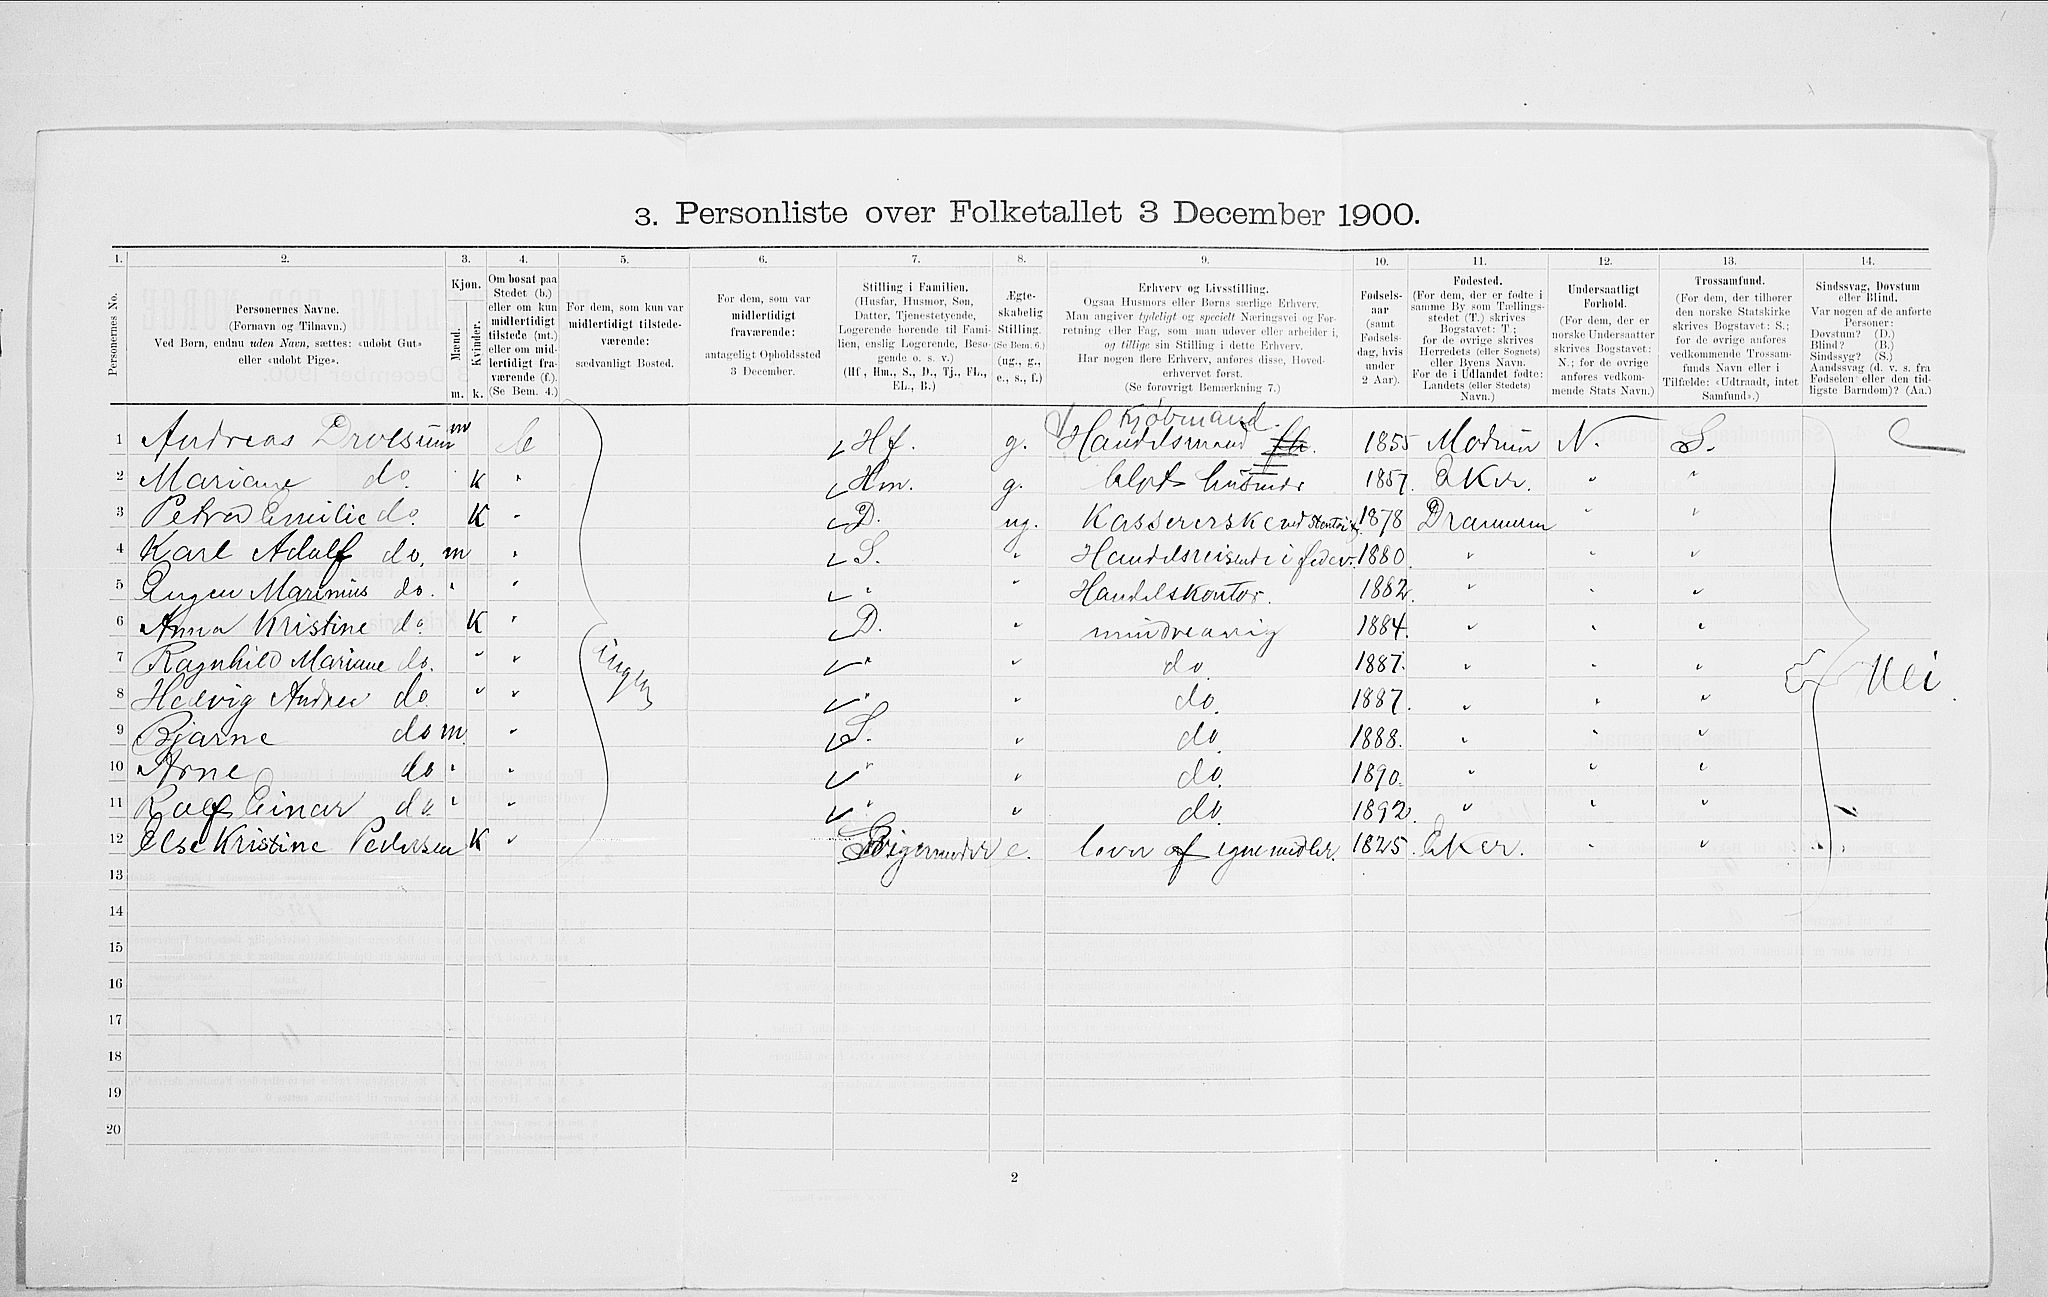 3. Personliste over Folketallet 3 December 1900.
1. 2. 3. 4. 5. 6. 7. 8. 9. 10. 11. 12. 13. 14.
Personernes No.
Personernes Navne.
(Fornavn og Tilnavn.)
Ved Børn, endnu uden Navn, sættes: «udøbt Gut»
eller «udøbt Pige».
Kjøn.
Mænd.
Kvinder.
m. k.
Om bosat paa
Stedet (b.)
eller om kun
midlertidigt
tilstede (mt.)
eller om mid-
lertidigt fra-
værende (f.).
(Se Bem. 4.)
For dem, som kun var
midlertidigt tilstede-
værende:
sædvanligt Bosted.
For dem, som var
midlertidigt
fraværende:
antageligt Opholdssted
3 December.
Stilling i Familien.
(Husfar, Husmor, Søn,
Datter, Tjenestetyende,
Logerende hørende til Fami-
lien, enslig Logerende, Besø-
gende o. s. v.)
(Hf., Hm., S., D., Tj., FL.,
EL., B.)
Ægte-
skabelig
Stilling.
(Se Bem. 6.)
(ug., g.,
e., s., f.)
Erhverv og Livsstilling.
Ogsaa Husmors eller Børns særlige Erhverv.
Man angiver tydeligt og specielt Næringsvei og For-
retning eller Fag, som man udøver eller arbeider i,
og tillige sin Stilling i dette Erhverv.
Har nogen flere Erhverv, anføres disse, Hoved-
erhvervet først.
(Se forøvrigt Bemærkning 7.)
Fødsels-
aar
(samt
Fødsels-
dag, hvis
under
2 Aar).
Fødested.
(For dem, der er fødte i
samme By som Tællings-
stedet (T.) skrives
Bogstavet: T.;
for de øvrige skrives
Herredets (eller Sognets)
eller Byens Navn.
For de i Udlandet fødte:
Landets (eller Stedets)
Navn.)
Undersaatligt
Forhold.
(For dem, der er
norske Undersaatter
skrives Bogstavet:
N.; for de øvrige
anføres vedkom-
mende Stats Navn.)
Trossamfund.
(For dem, der tilhører
den norske Statskirke
skrives Bogstavet: S.;
for de øvrige anføres
vedkommende Trossam-
funds Navn eller i
Tilfælde: «Udtraadt, intet
Samfund».)
Sindssvag, Døvstum
eller Blind.
Var nogen af de anførte
Personer:
Døvstum? (D.)
Blind? (B.)
Sindssyg? (S.)
Aandssvag (d. v. s. fra
Fødselen eller den tid-
ligste Barndom)? (Aa.)
Kjøbmand.
1 Andreas Drolsum m b Hf. g. Handelsmand 1855 Modum N. S.
2 Mariane do. K " Hm. g. husmor 1857. Eker. " "
3 Petra Emilie do. K " D. ug. Kassererske ved 1878 Drammen " "
4 Karl Adolf do. m " S. " Handelsreisende i 1880. " " "
5 Eugen Marinius do. " " " " Handelskontor. 1882. " " "
6 Anna Kristine do. K " D. " mindreaarig 1884. " " "
7 Ragnhild Mariane do. " " " " do. 1887. " " "
ingen
Nei.
8 Hedvig Andrea do. " " " " do. 1887. " " "
9 Bjarne do m. " S. " do. 1888. " " "
10 Arne do " " " " do. 1890. " " "
11 Rolf Einar do. " " " " do. 1892. " " "
12 Else Kristine Pedersen K " e. lever af egne midler. 1825. Eker. " "
13
14
15
16
17
18
19
20
2